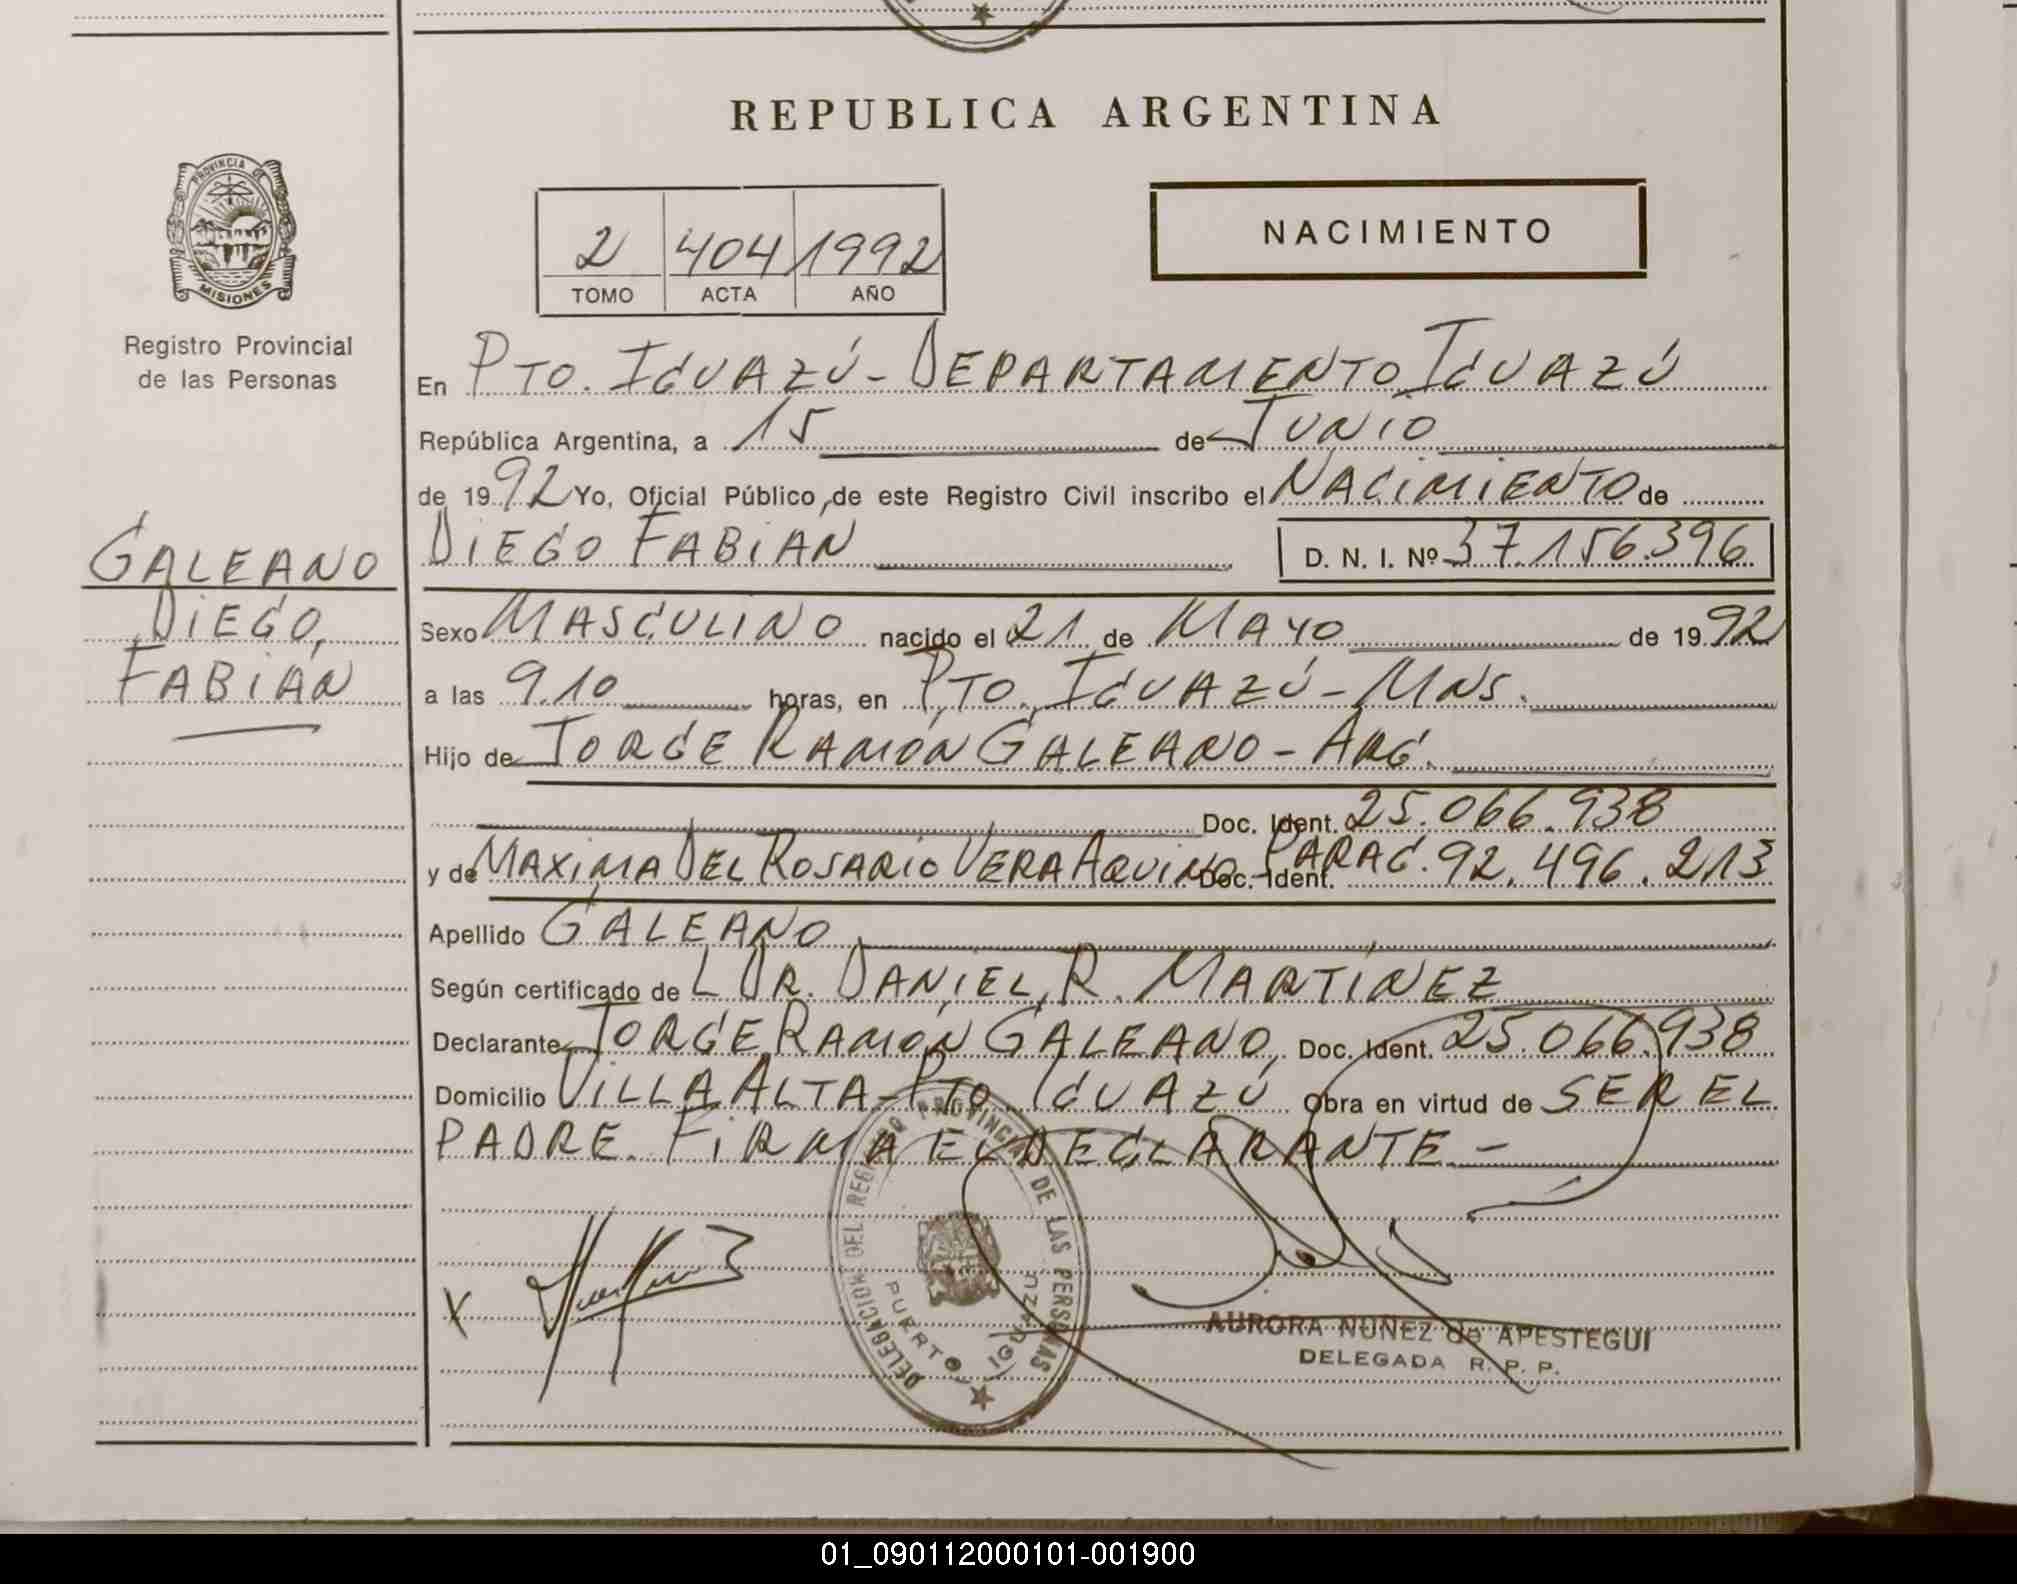 REPUBLICA ARGENTINA
PROVINCIA DE
MISIONES
Registro Provincial
de las Personas
2 404 1992
TOMO ACTA AÑO
NACIMIENTO
En PTO. IGUAZÚ - DEPARTAMENTO IGUAZÚ
República Argentina, a 15 de JUNIO
de 1992 Yo, Oficial Público, de este Registro Civil inscribo el NACIMIENTO de
DIEGO FABIAN D. N. I. Nº 37.156.396
GALEANO
DIEGO,
FABIÁN
Sexo MASCULINO nacido el 21 de MAYO de 1992
a las 9.10 horas, en PTO. IGUAZÚ - MNS.
Hijo de JORGE RAMÓN GALEANO - ARG.
Doc. Ident. 25.066.938
y de MAXIMA DEL ROSARIO VERA AQUINO - PARAG. Doc. Ident. 92.496.213
Apellido GALEANO
Según certificado de L DR. DANIEL R. MARTÍNEZ
Declarante JORGE RAMÓN GALEANO, Doc. Ident. 25.066.938
Domicilio VILLA ALTA - PTO. IGUAZÚ Obra en virtud de SER EL
PADRE. FIRMA EL DECLARANTE. -
X
DELEGACION DEL REGISTRO PROVINCIAL DE LAS PERSONAS
PUERTO IGUAZU
AURORA NUÑEZ de APESTEGUI
DELEGADA R. P. P.
01_090112000101-001900